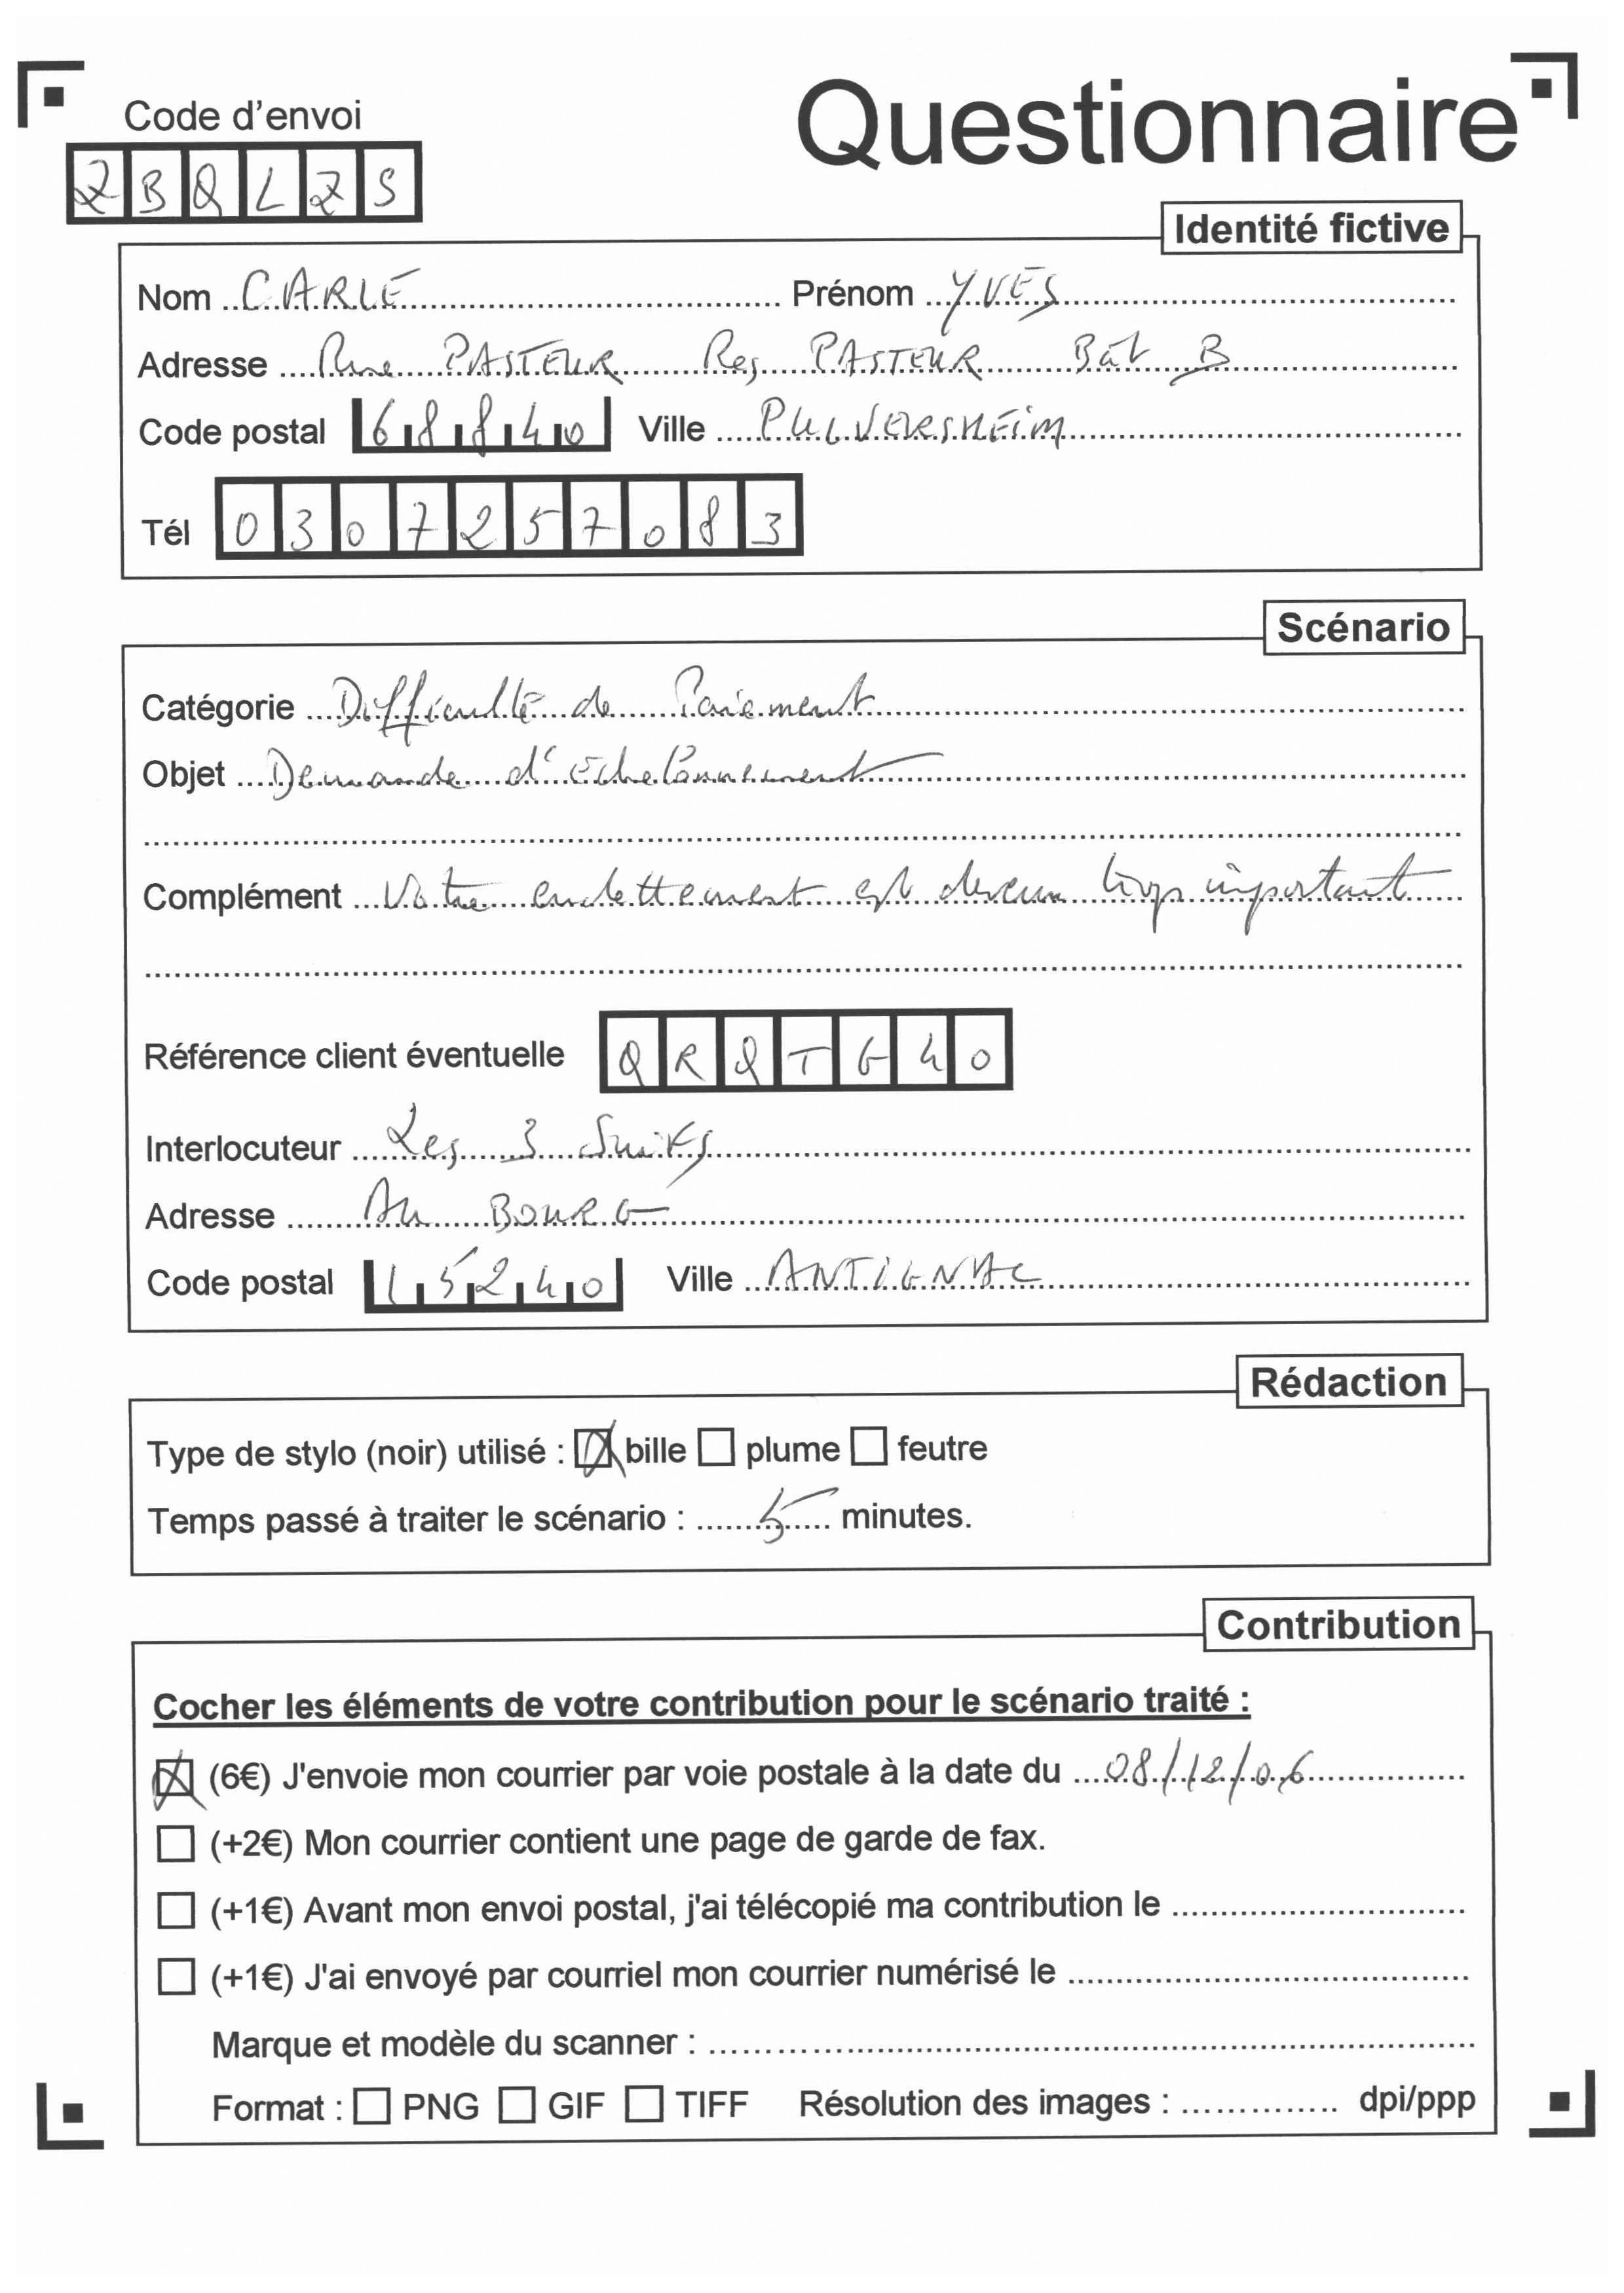 Code d'envoi
Questionnaire
ZBQLZS
Identité fictive
Nom CARLE Prénom YVES
Adresse Rue PASTEUR Res PASTEUR Bât B
Code postal 68840 Ville PULVERSHEIM
Tél 0307257083
Scénario
Catégorie Difficulté de Paiement
Objet Demande d'échelonnement
Complément Votre endettement est devenu trop important
Référence client éventuelle QRQTG40
Interlocuteur Les 3 Suisses
Adresse Au BOURG
Code postal 15240 Ville ANTIGNAC
Rédaction
Type de stylo (noir) utilisé : bille plume feutre
Temps passé à traiter le scénario : 5 minutes.
Contribution
Cocher les éléments de votre contribution pour le scénario traité :
(6€) J'envoie mon courrier par voie postale à la date du 08/12/06
(+2€) Mon courrier contient une page de garde de fax.
(+1€) Avant mon envoi postal, j'ai télécopié ma contribution le
(+1€) J'ai envoyé par courriel mon courrier numérisé le
Marque et modèle du scanner :
Format : PNG GIF TIFF Résolution des images : dpi/ppp